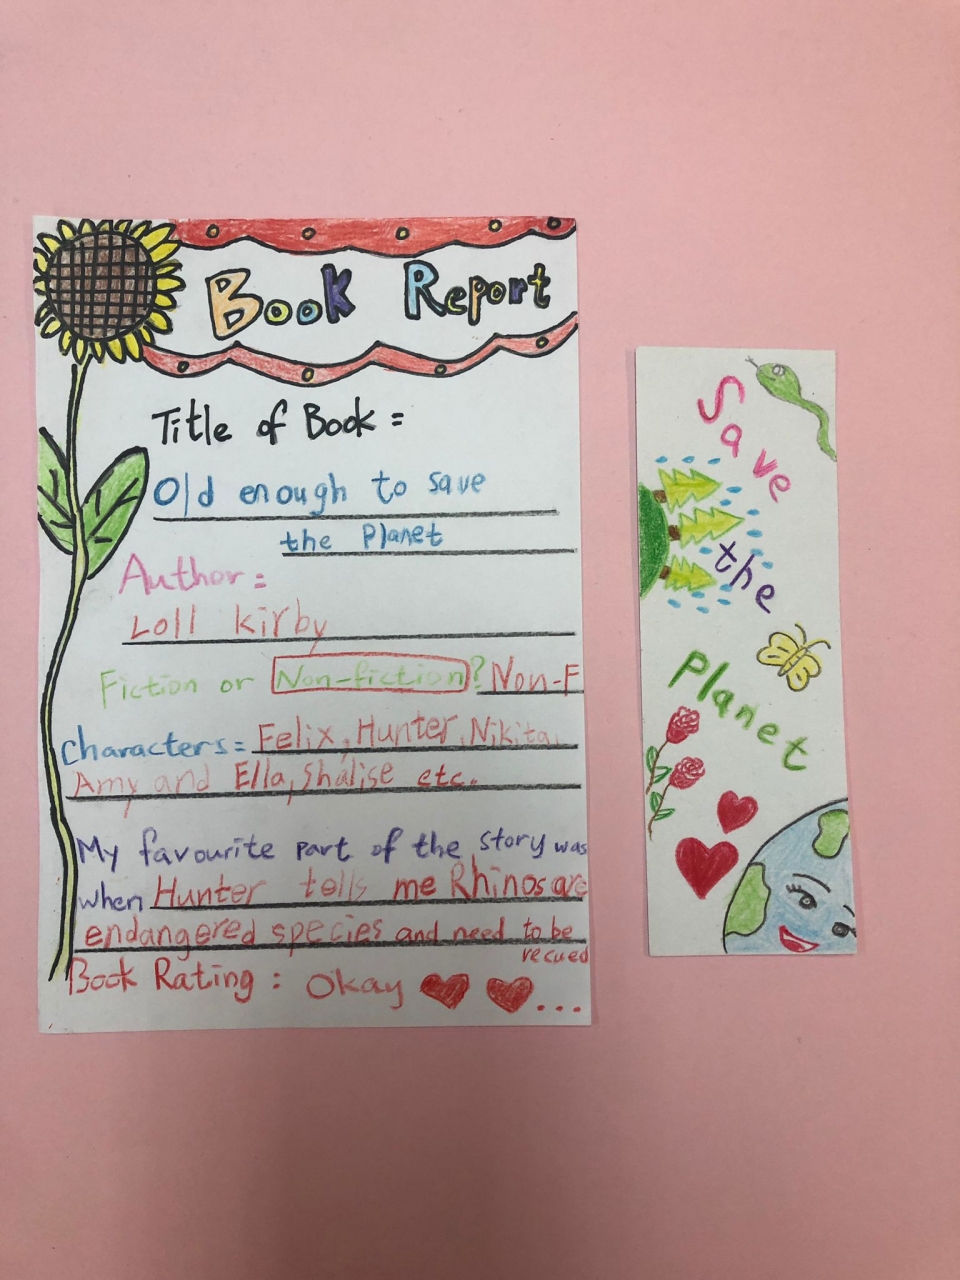 Book Report
Title of Book =
Old enough to save
the Planet
Author =
Loll kirby
Fiction or Non-fiction? Non-F
Characters= Felix, Hunter, Nikita,
Amy and Ella, Shalise etc.
My favourite part of the story was
when Hunter tells me Rhinos are
endangered species and need to be
recued
Book Rating : Okay ...
Save
the
Planet